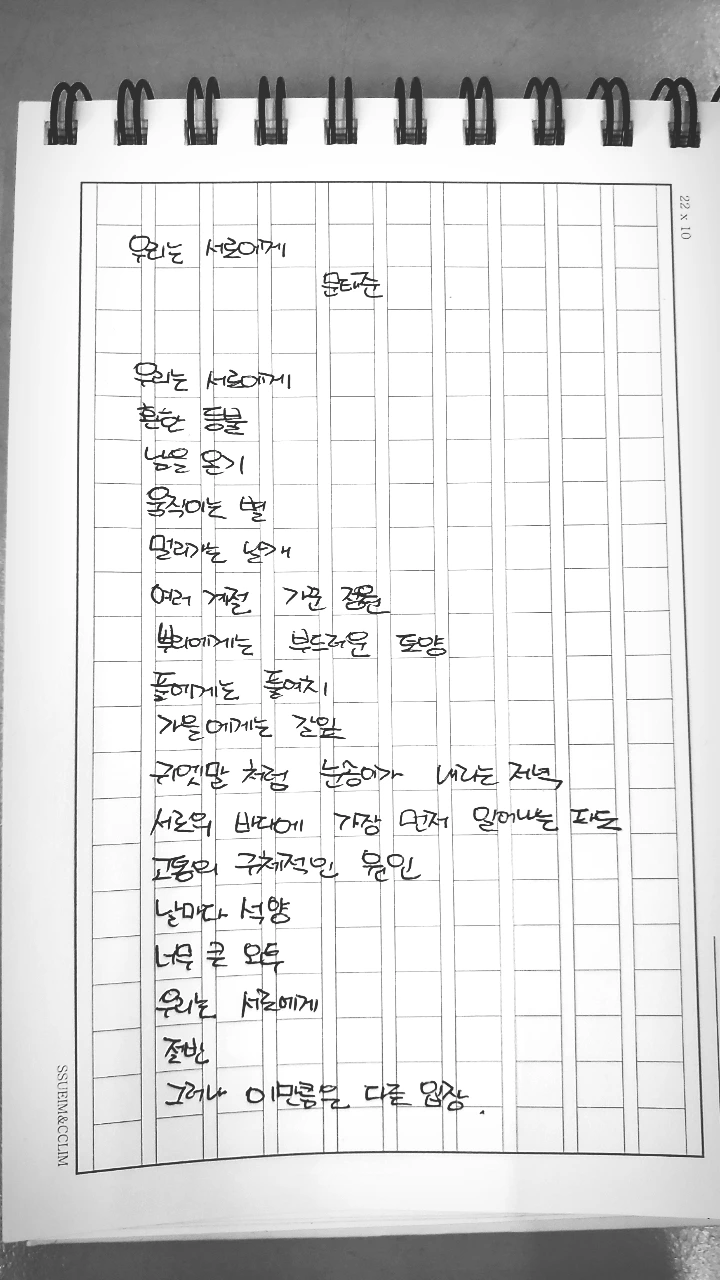 우리는 서로에게
문태준
우리는 서로에게
환한 등불
남은 온기
움직이는 별
멀리가는 날개
여러 계절 가꾼 정원
뿌리에게는 부드러운 토양
풀에게는 풀여치
가을에게는 갈잎
귀엣말 처럼 눈송이가 내리는 저녁
서로의 바다에 가장 먼저 일어나는 파도
고통의 구체적인 원인
날마다 석양
너무 큰 외투
우리는 서로에게
절반
그러나 이만큼은 다른 입장.
22 x 10
SSUEIM&CCLIM